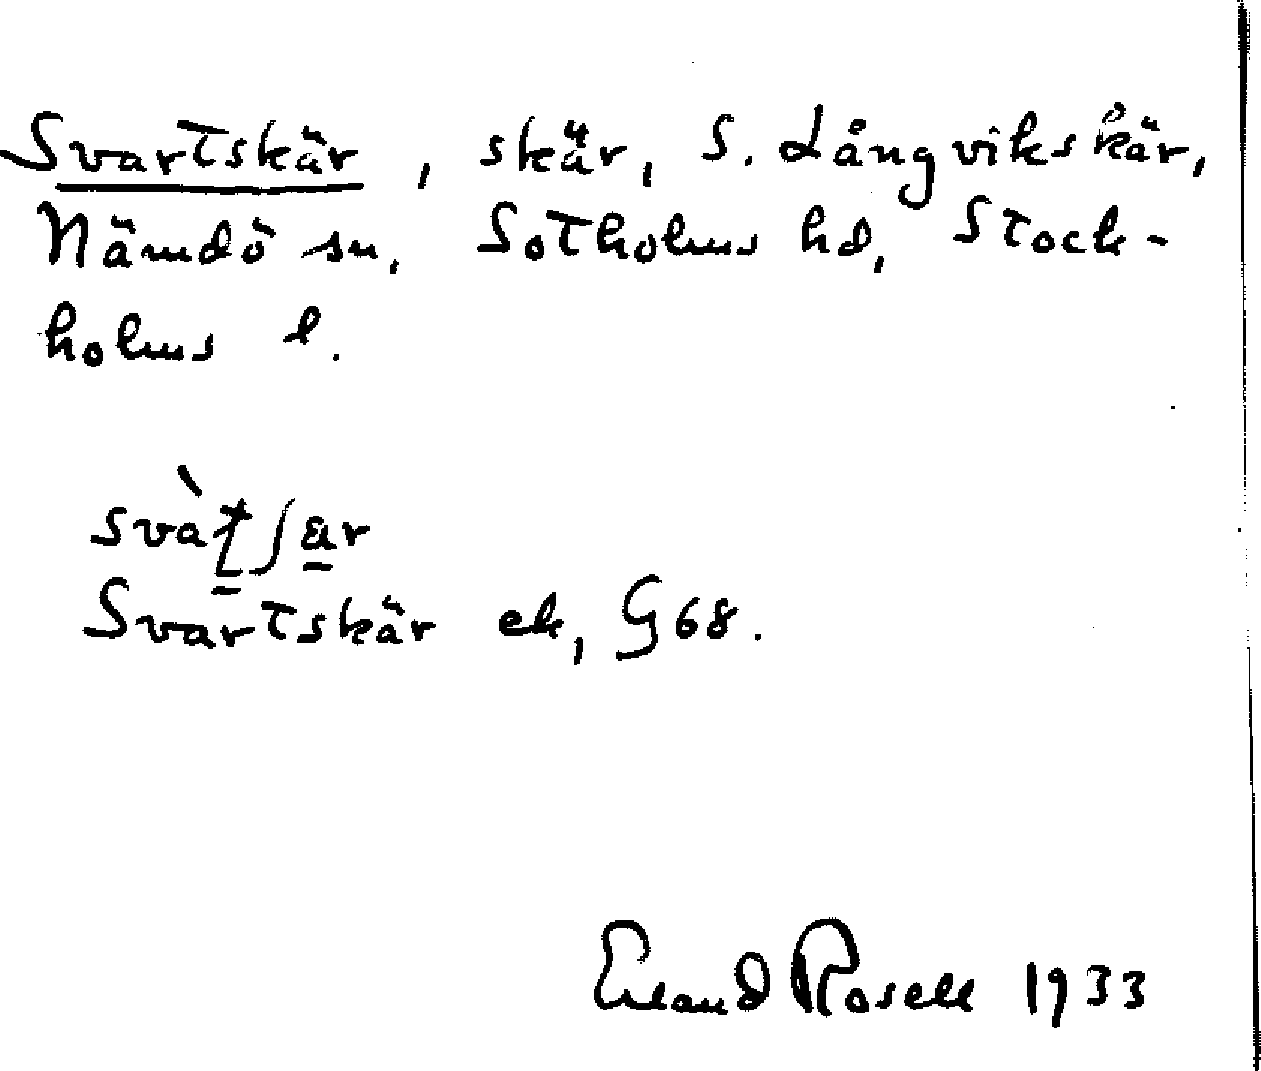 Svartskär, skär, S. Långvikskär,
Nämdö sn, Sotholms hd, Stock-
holms l.
svàʈʃär
Svartskär ek, G68.
Erland Rosell 1933